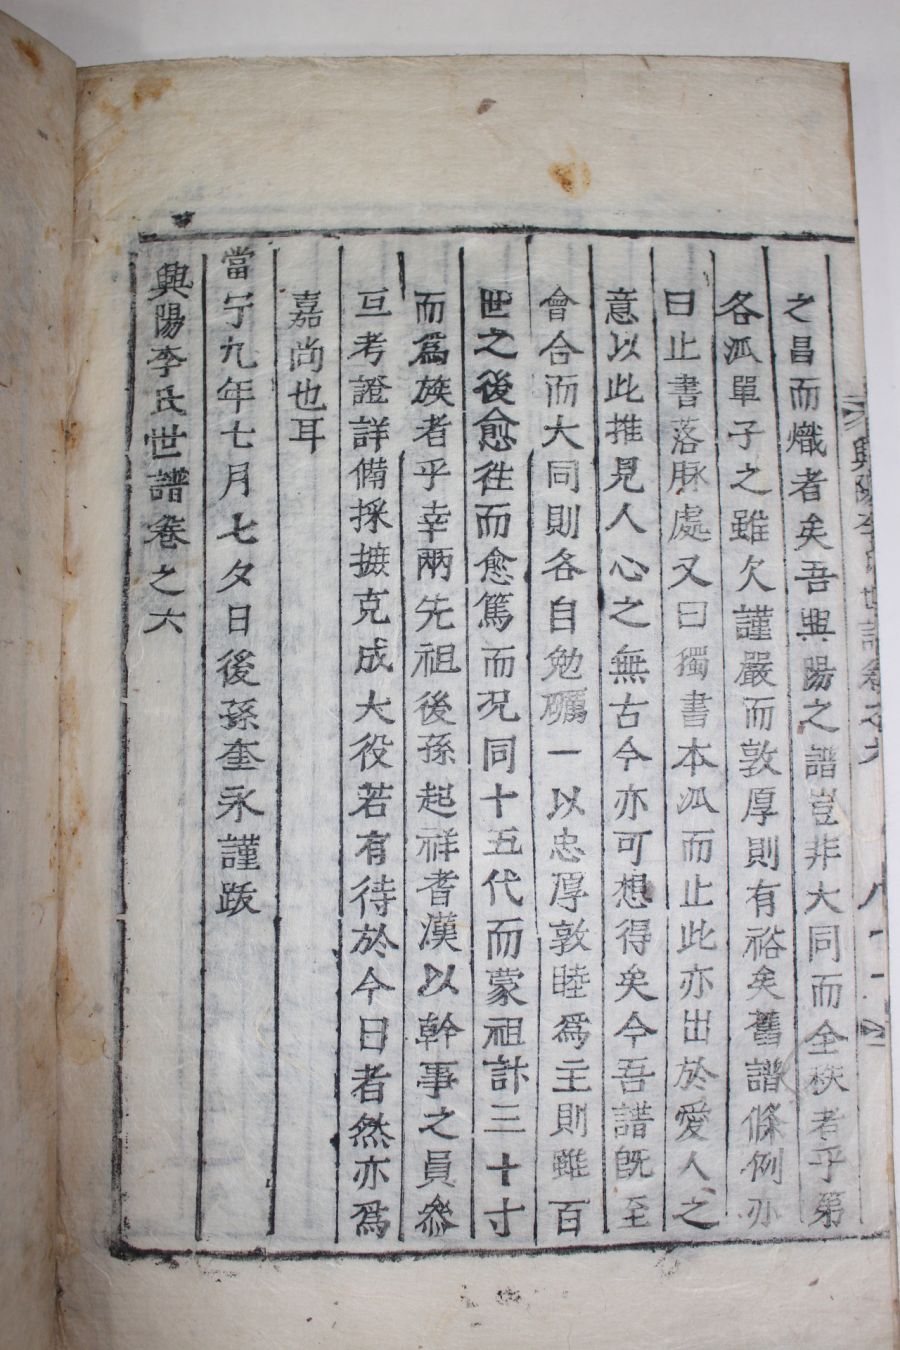 興陽李氏世譜卷之六 八十一
之昌而熾者矣吾興陽之譜豈非大同而全秩者乎第
各派單子之雖欠謹嚴而敦厚則有裕矣舊譜條例亦
曰止書落脉處又曰獨書本派而止此亦出於愛人之
意以此推見人心之無古今亦可想得矣今吾譜旣至
會合而大同則各自勉礪一以忠厚敦睦爲主則雖百
世之後愈徃而愈篤而况同十五代而蒙祖計三十寸
而爲族者乎幸兩先祖後孫起祥耆漢以幹事之員叅
亙考證詳備採摭克成大役若有待於今日者然亦爲
嘉尚也耳
當宁九年七月七夕日後孫奎永謹跋
興陽李氏世譜卷之六